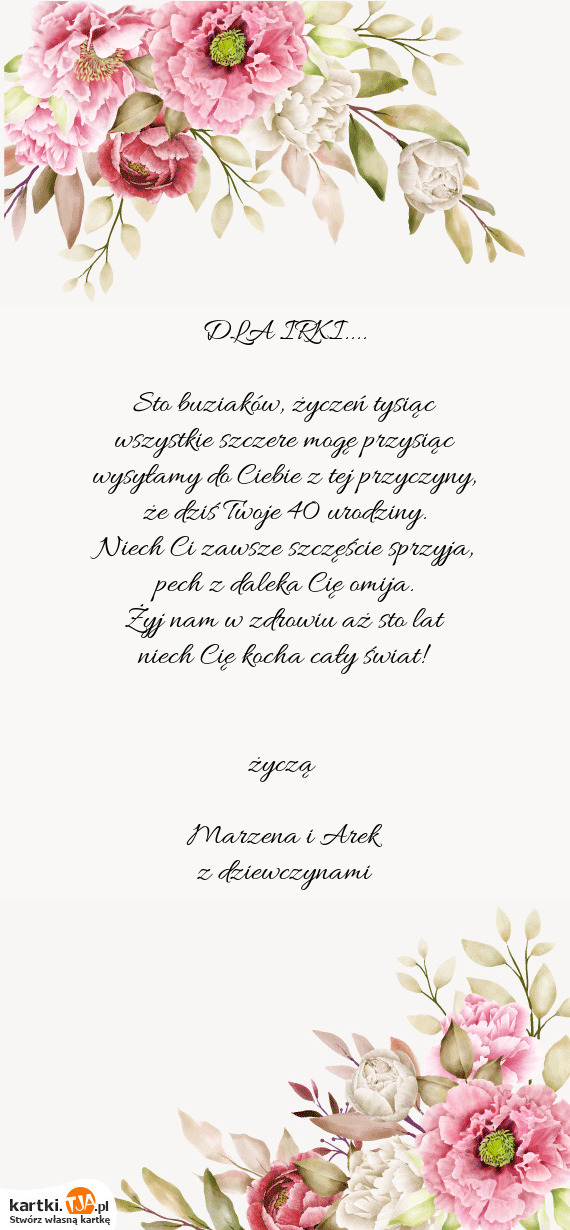 DLA IRKI....
Sto buziaków, życzeń tysiąc
wszystkie szczere mogę przysiąc
wysyłamy do Ciebie z tej przyczyny,
że dziś Twoje 40 urodziny.
Niech Ci zawsze szczęście sprzyja,
pech z daleka Cię omija.
Żyj nam w zdrowiu aż sto lat
niech Cię kocha cały świat!
życzą
Marzena i Arek
z dziewczynami
kartki.TJA.pl
Stwórz własną kartkę